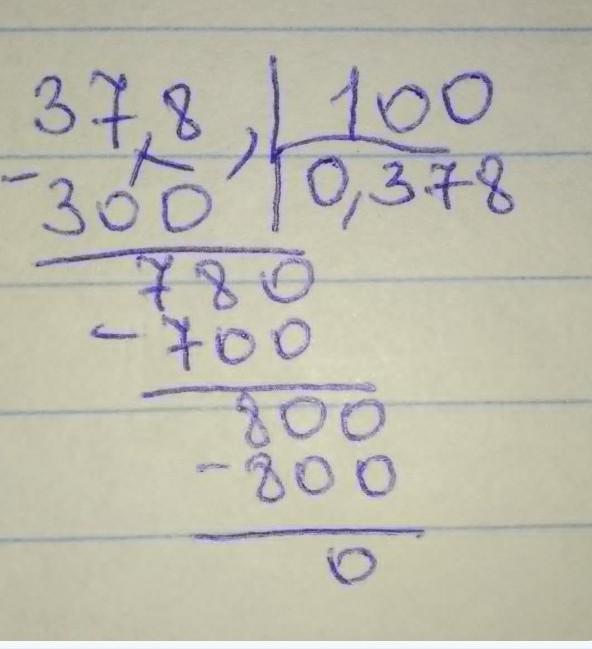 37,8, 100
-300 0,378
780
-700
800
-800
0